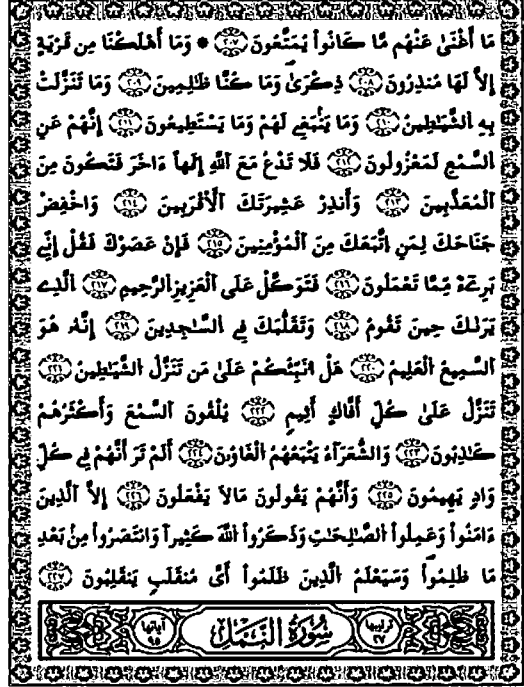 مَا أَغْنَىٰ عَنْهُم مَّا كَانُواْ يُمَتَّعُونَ ٢٠٧ * وَمَا أَهْلَكْنَا مِن قَرْيَةٍ
إِلاَّ لَهَا مُنذِرُونَ ٢٠٨ ذِكْرَىٰ وَمَا كُنَّا ظَٰلِمِينَ ٢٠٩ وَمَا تَنَزَّلَتْ
بِهِ الشَّيَٰطِينُ ٢١٠ وَمَا يَنۢبَغِے لَهُمْ وَمَا يَسْتَطِيعُونَ ٢١١ إِنَّهُمْ عَنِ
السَّمْعِ لَمَعْزُولُونَ ٢١٢ فَلَا تَدْعُ مَعَ اللَّهِ إِلَٰهاً ءَاخَرَ فَتَكُونَ مِنَ
الْمُعَذَّبِينَ ٢١٣ وَأَنذِرْ عَشِيرَتَكَ الْأَقْرَبِينَ ٢١٤ وَاخْفِضْ
جَنَاحَكَ لِمَنِ اتَّبَعَكَ مِنَ الْمُؤْمِنِينَ ٢١٥ فَإِنْ عَصَوْكَ فَقُلْ إِنِّے
بَرِےٓءٌ مِّمَّا تَعْمَلُونَ ٢١٦ فَتَوَكَّلْ عَلَى الْعَزِيزِ الرَّحِيمِ ٢١٧ الَّذِے
يَرَىٰكَ حِينَ تَقُومُ ٢١٨ وَتَقَلُّبَكَ فِے السَّٰجِدِينَ ٢١٩ إِنَّهُ هُوَ
السَّمِيعُ الْعَلِيمُ ٢٢٠ هَلْ أُنَبِّئُكُمْ عَلَىٰ مَن تَنَزَّلُ الشَّيَٰطِينُ ٢٢١
تَنَزَّلُ عَلَىٰ كُلِّ أَفَّاكٍ أَثِيمٍ ٢٢٢ يُلْقُونَ السَّمْعَ وَأَكْثَرُهُمْ
كَٰذِبُونَ ٢٢٣ وَالشُّعَرَآءُ يَتْبَعُهُمُ الْغَاوُۥنَ ٢٢٤ أَلَمْ تَرَ أَنَّهُمْ فِے كُلِّ
وَادٍ يَهِيمُونَ ٢٢٥ وَأَنَّهُمْ يَقُولُونَ مَالَا يَفْعَلُونَ ٢٢٦ إِلاَّ الَّذِينَ
ءَامَنُواْ وَعَمِلُواْ الصَّٰلِحَٰتِ وَذَكَرُواْ اللَّهَ كَثِيراً وَانتَصَرُواْ مِنۢ بَعْدِ
مَا ظُلِمُواْ وَسَيَعْلَمُ الَّذِينَ ظَلَمُواْ أَىَّ مُنقَلَبٍ يَنقَلِبُونَ ٢٢٧
ترتيبها ٢٧ سُورَةُ النَّمْلِ آياتها ٩٥